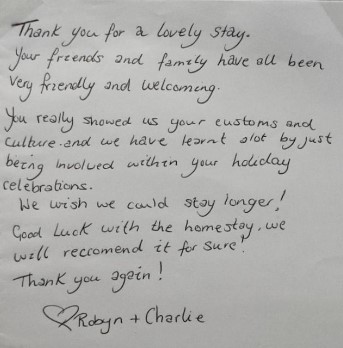 Thank you for a lovely stay.
Your friends and family have all been
very friendly and welcoming.
You really showed us your customs and
culture.and we have learnt alot by just
being involved within your holiday
celebrations.
We wish we could stay longer!
Good Luck with the homestay, we
will reccomend it for sure!
Thank you again!
♡Robyn + Charlie